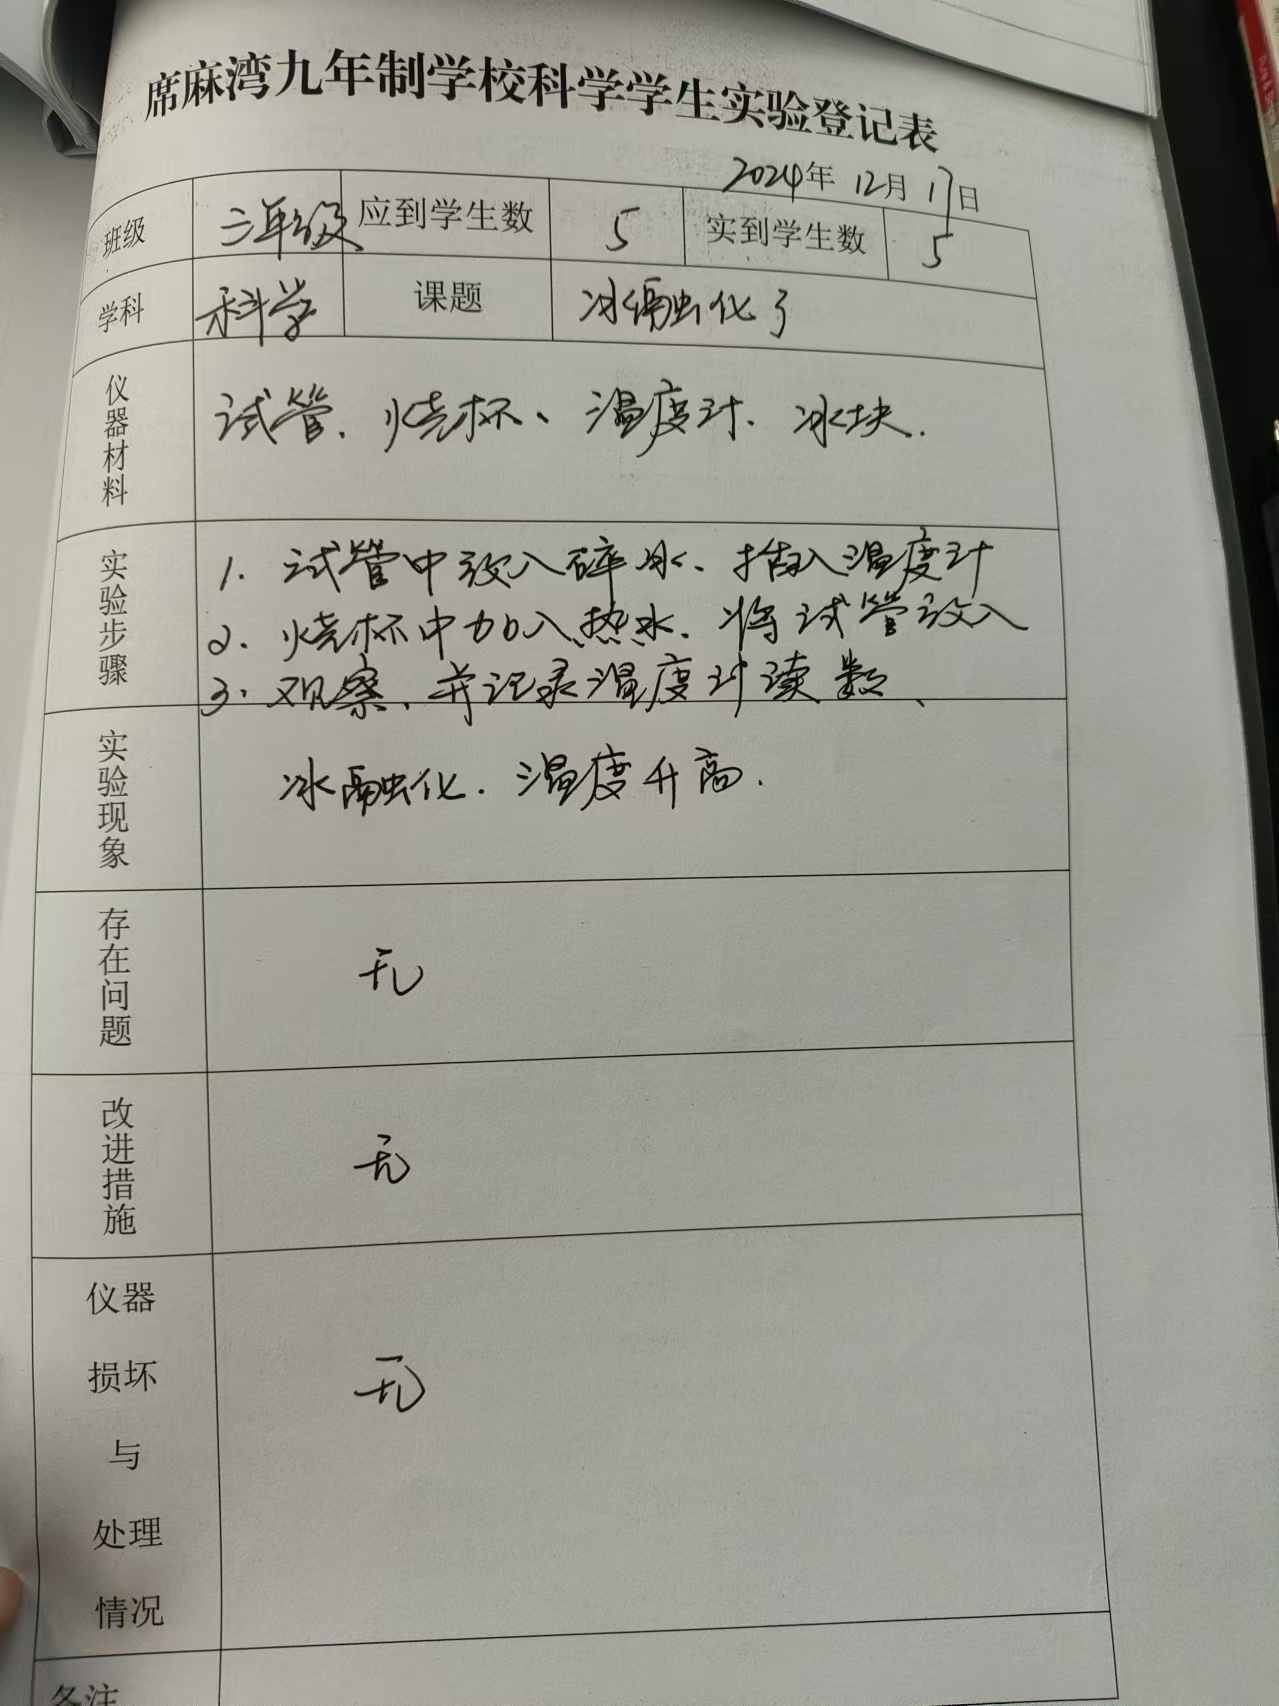 席麻湾九年制学校科学学生实验登记表
2024年 12月 17日
班级 三年级 应到学生数 5 实到学生数 5
学科 科学 课题 冰融化了
仪器材料 试管、烧杯、温度计、冰块.
实验步骤 1. 试管中放入碎冰、插入温度计
2. 烧杯中加入热水、将试管放入
3. 观察、并记录温度计读数、
实验现象 冰融化. 温度升高.
存在问题 无
改进措施 无
仪器
损坏
与
处理
情况
无
备注